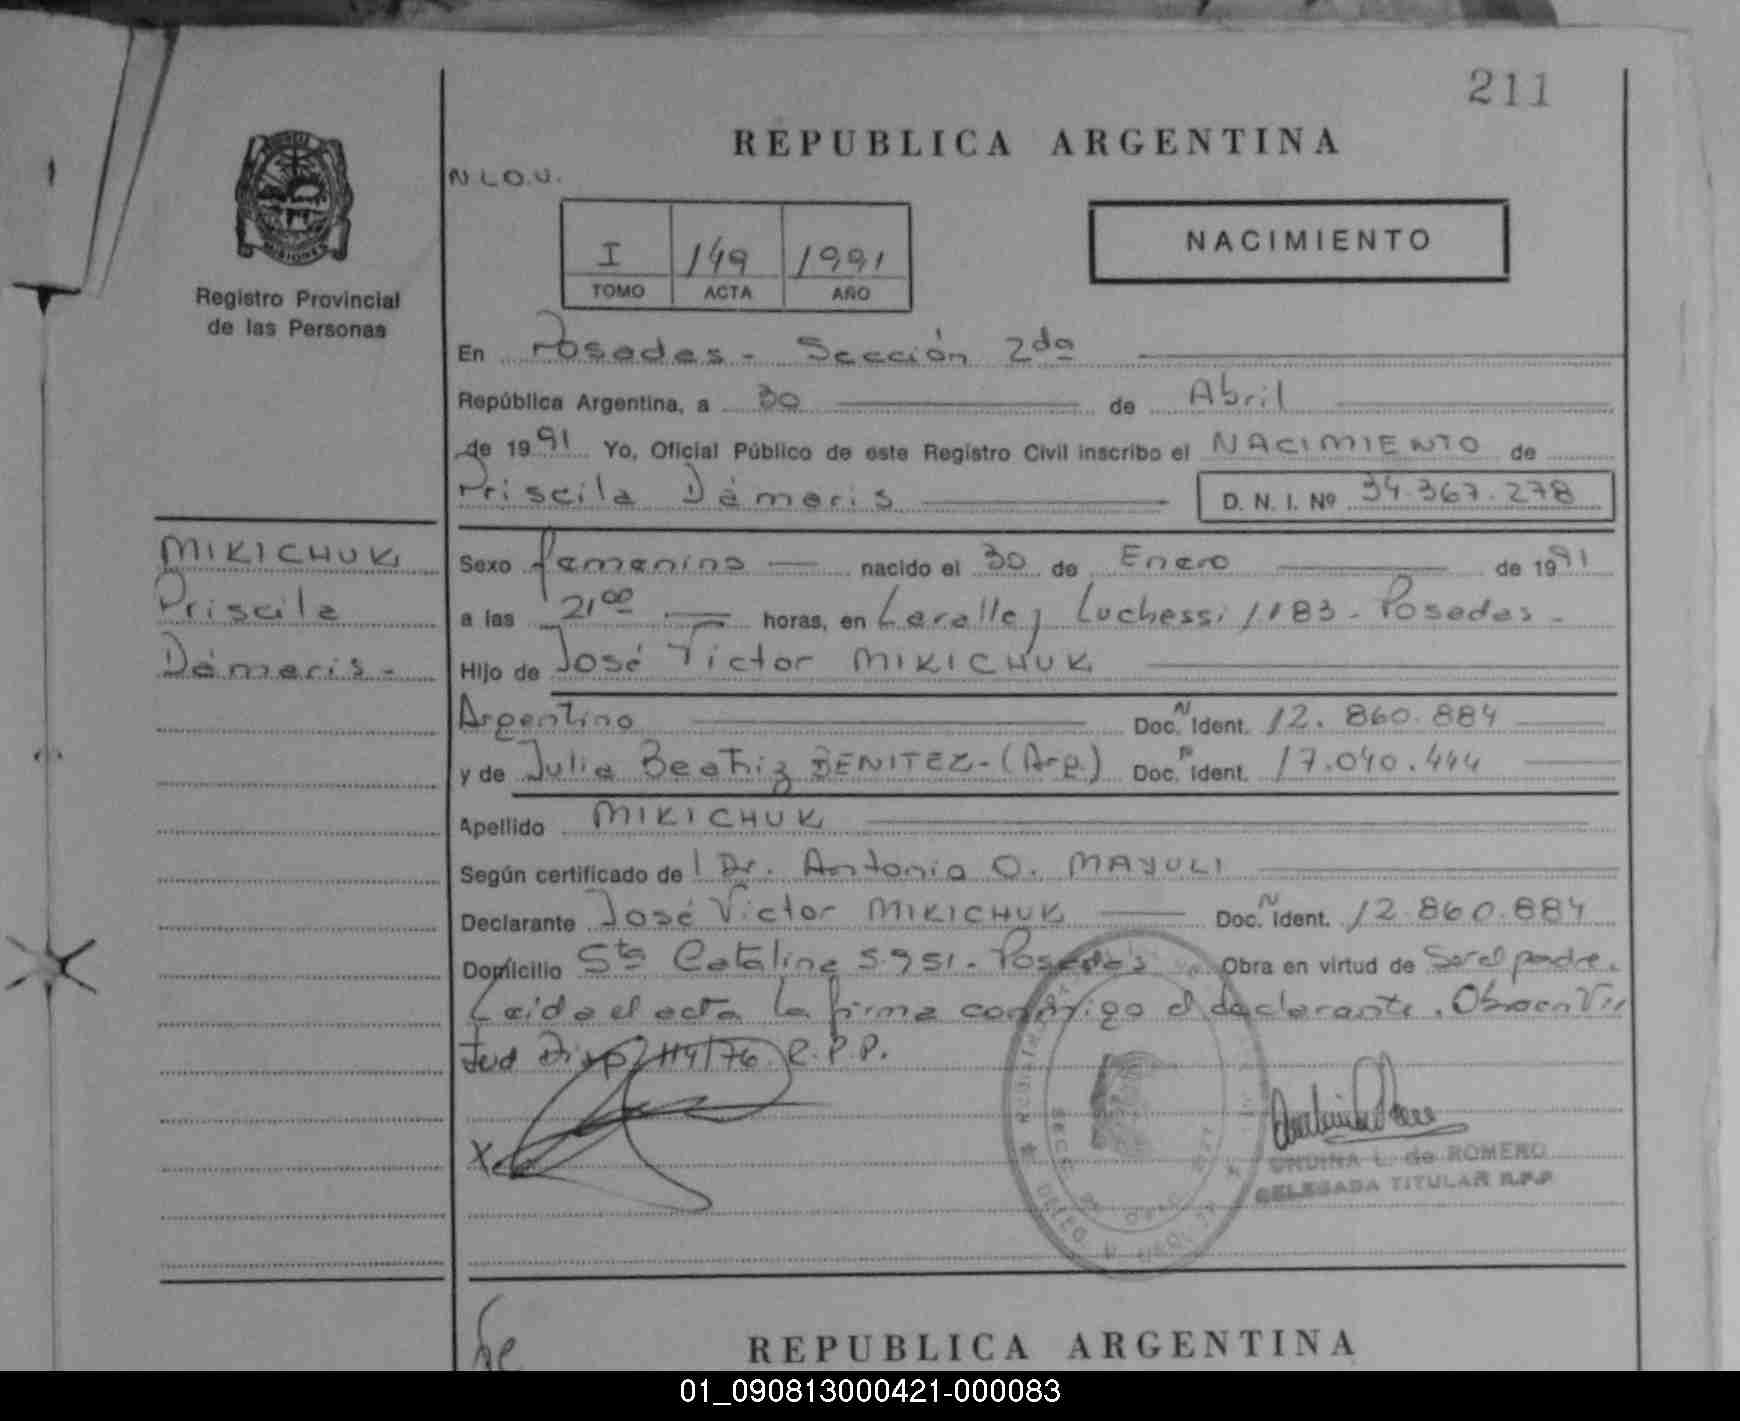 211
REPUBLICA ARGENTINA
N L O.U.
NACIMIENTO
I 149 1991
TOMO ACTA AÑO
Registro Provincial
de las Personas
En Posadas - Sección 2da
República Argentina, a 30 de Abril
de 1991 Yo, Oficial Público de este Registro Civil inscribo el NACIMIENTO de
Priscila Dámaris D. N. I. Nº 34.367.278
MIKICHUK
Priscila
Dámaris -
Sexo femenino nacido el 30 de Enero de 1991
a las 21⁰⁰ horas, en Lavalle y Luchessi 1183 - Posadas -
Hijo de José Victor MIKICHUK
Argentino Doc. N Ident. 12.860.884
y de Julia Beatriz BENITEZ - (Arg.) Doc. Ident. 17.040.444
Apellido MIKICHUK
Según certificado de Dr. Antonio O. MAYULI
Declarante José Victor MIKICHUK Doc. N Ident. 12.860.884
Domicilio Sta Catalina 5951 - Posadas Obra en virtud de Ser el padre.
Leida el acta la firma conmigo el declarante. Obra en Vir
tud Disp 114/76. R.P.P.
X
ONDINA L. de ROMERO
DELEGADA TITULAR R.P.P.
REPUBLICA ARGENTINA
01_090813000421-000083